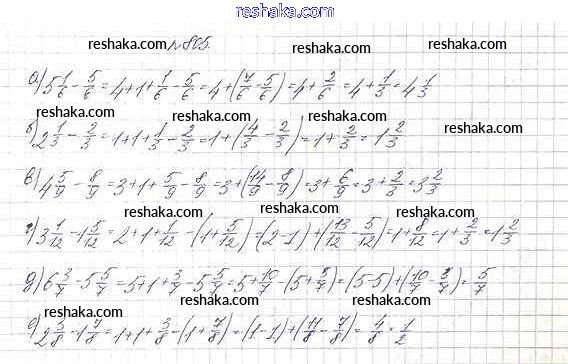 reshaka.com
reshaka.com №805. reshaka.com reshaka.com
а) 5 1/6 - 5/6 = 4+1+1/6 - 5/6 = 4+(7/6 - 5/6) = 4+2/6 = 4+1/3 = 4 1/3
reshaka.com reshaka.com reshaka.com reshaka.com
б) 2 1/3 - 2/3 = 1+1+1/3 - 2/3 = 1+(4/3 - 2/3) = 1+2/3 = 1 2/3
reshaka.com reshaka.com reshaka.com
в) 4 5/9 - 8/9 = 3+1+5/9 - 8/9 = 3+(14/9 - 8/9) = 3+6/9 = 3+2/3 = 3 2/3
reshaka.com reshaka.com reshaka.com
г) 3 1/12 - 1 5/12 = 2+1+1/12 - (1+5/12) = (2-1)+(13/12 - 5/12) = 1+8/12 = 1+2/3 = 1 2/3
reshaka.com reshaka.com reshaka.com
д) 6 3/7 - 5 5/7 = 5+1+3/7 - 5 5/7 = 5+10/7 - (5+5/7) = (5-5)+(10/7 - 5/7) = 5/7
reshaka.com reshaka.com reshaka.com
е) 2 3/8 - 1 7/8 = 1+1+3/8 - (1+7/8) = (1-1)+(11/8 - 7/8) = 4/8 = 1/2
reshaka.com reshaka.com reshaka.com